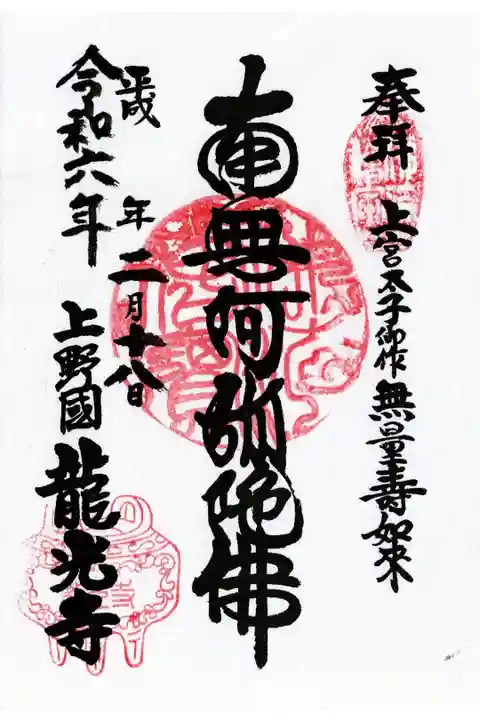 奉拝 上宮太子御作 無量壽如來
南無阿弥陀佛
平成 年二月十八日
令和六年
上野國 龍光寺